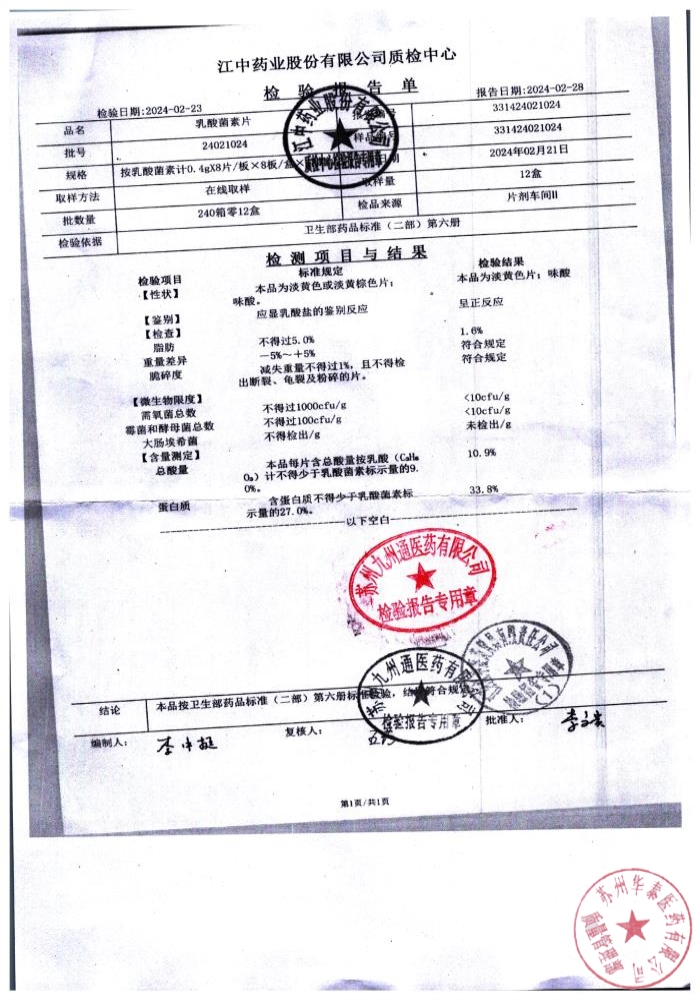 江中药业股份有限公司质检中心
检验报告单
检验日期:2024-02-23 报告日期:2024-02-28
品名 乳酸菌素片 331424021024
批号 24021024 331424021024
规格 按乳酸菌素计0.4gX8片/板×8板/盒× 2024年02月21日
取样方法 在线取样 取样量 12盒
批数量 240箱零12盒 检品来源 片剂车间II
检验依据 卫生部药品标准（二部）第六册
检测项目与结果
检验项目 标准规定 检验结果
【性状】 本品为淡黄色或淡黄棕色片； 本品为淡黄色片；味酸
味酸。
【鉴别】 应显乳酸盐的鉴别反应 呈正反应
【检查】
脂肪 不得过5.0% 1.6%
重量差异 －5%～＋5% 符合规定
脆碎度 减失重量不得过1%，且不得检 符合规定
出断裂、龟裂及粉碎的片。
【微生物限度】
需氧菌总数 不得过1000cfu/g <10cfu/g
霉菌和酵母菌总数 不得过100cfu/g <10cfu/g
大肠埃希菌 不得检出/g 未检出/g
【含量测定】
总酸量 本品每片含总酸量按乳酸（C₃H₆ 10.9%
O₃）计不得少于乳酸菌素标示量的9.
0%。
蛋白质 含蛋白质不得少于乳酸菌素标 33.8%
示量的27.0%。
以下空白
江中药业股份有限公司
苏州九州通医药有限公司
检验报告专用章
九州通医药有限公司
检验报告专用章
结论 本品按卫生部药品标准（二部）第六册标准检验，结果符合规定
编制人： 复核人： 批准人：
第1页/共1页
苏州华泰医药有限公司